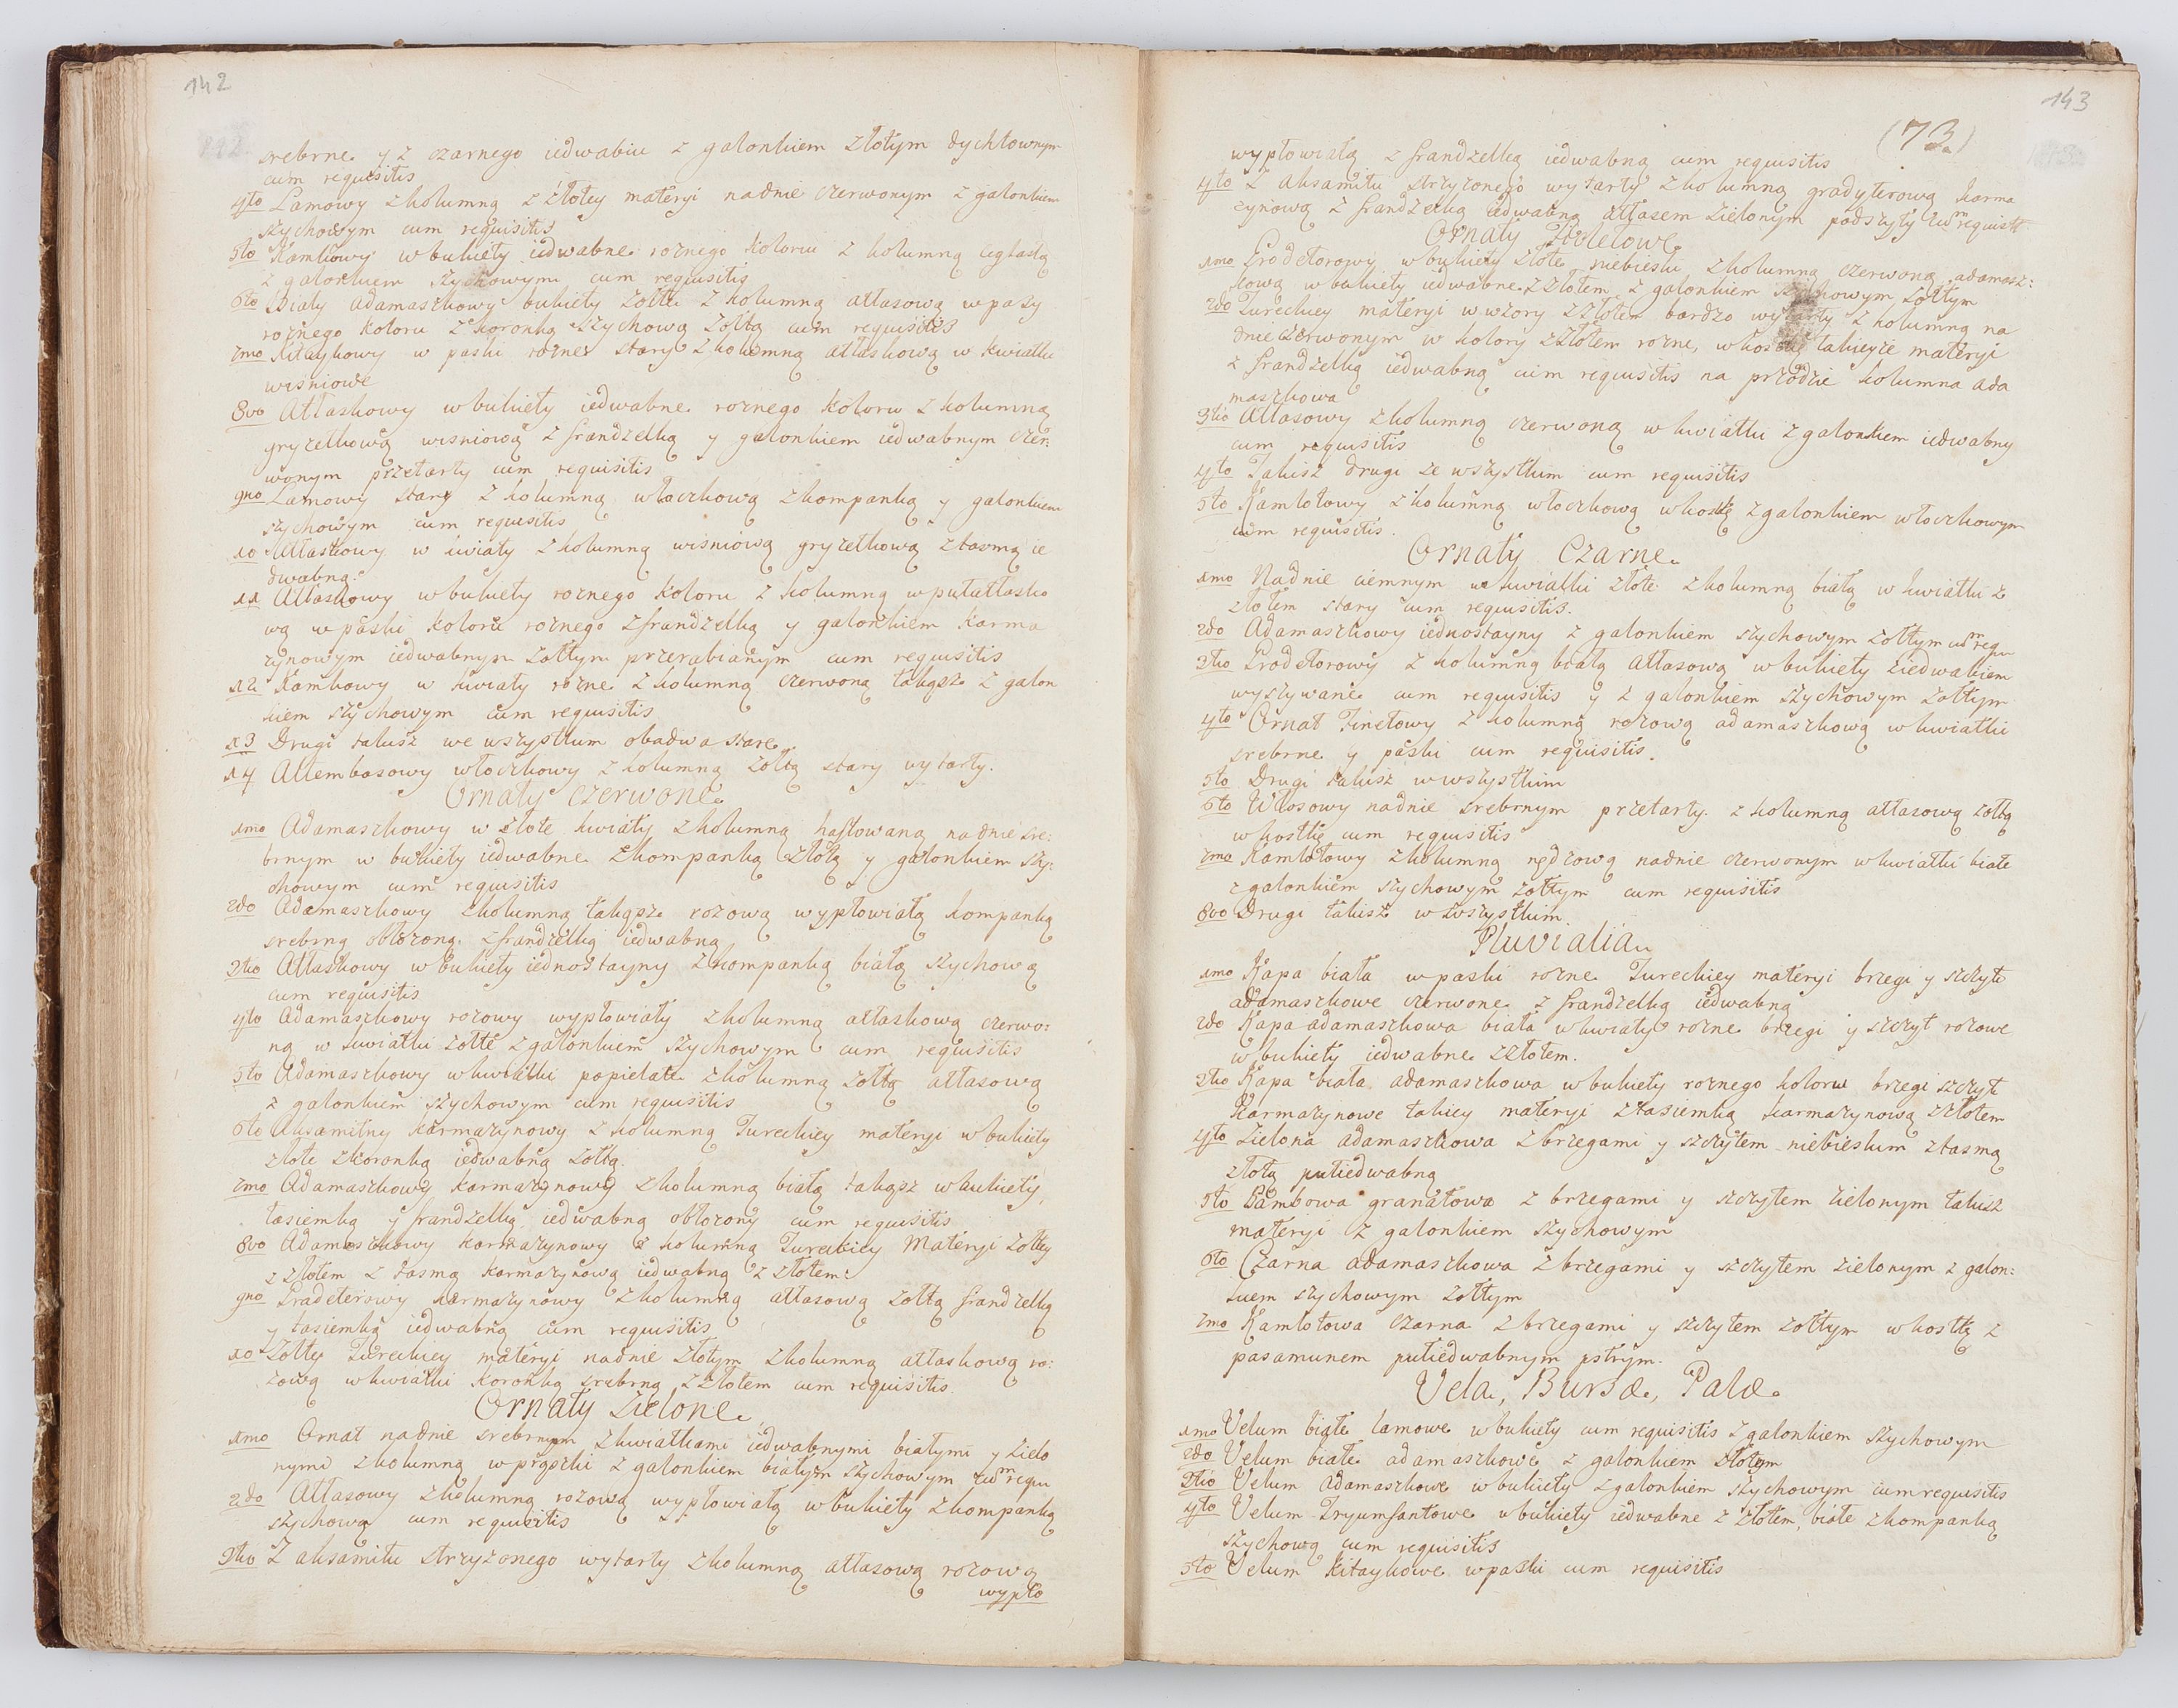 142
srebrne y z czarnego iedwabiu z galonkiem złotym dychtownym
cum requisitis
4to Lamowy z kolumną z złotey materyi nadnie czerwonym z galonkiem
szychowym cum requisitis
5to Kamkowy w bukiety iedwabne roznego koloru z kolumną ceglastą
z galonkiem szychowym cum requisitis
6to Biały adamaszkowy bukiety żółte z kolumną atłasową w pasy
roznego koloru z koronką szychową żółtą cum requisitis
7mo Kitaykowy w paski rozne stary z kolumną atłaskową w kwiatki
wisniowe
8vo Atłaskowy w bukiety iedwabne roznego koloru z kolumną
gryzetkową wisniową z frandzelką y galonkiem iedwabnym czer:
wonym przetarty cum requisitis
9no Lamowy stary z kolumną włoczkową z kompanką y galonkiem
szychowym cum requisitis
10 Atłaskowy w kwiaty z kolumną wisniową gryzetkową z tasmą ie
dwabną
11 Atłaskowy w bukiety roznego koloru z kolumną w pułatłasko
wą w paski koloru roznego z frandzelką y galonkiem karma
zynowym iedwabnym żołtym przerabianym cum requisitis
12 Kamkowy w kwiaty rozne z kolumną czerwoną takąsz z galon
kiem szychowym cum requisitis
13 Drugi takusz we wszystkim obadwa stare
14 Altembasowy włoczkowy z kolumną zołtą stary wytarty.
Ornaty czerwone
1mo Adamaszkowy w złote kwiaty z kolumną haftowaną nadnie sre:
brnym w bukiety iedwabne z kompanką złotą y galonkiem szy:
chowym cum requisitis
2do Adamaszkowy z kolumną takąsz rozową wypłowiałą kompanką
srebrną obłozoną z frandzelką iedwabną
3tio Atłaskowy w bukiety iednostayny z kompanką białą szychową
cum requisitis
4to Adamaszkowy rozowy wypłowiały z kolumną atłaskową czerwo:
ną w kwiatki zołte z galonkiem szychowym cum requisitis
5to Adamaszkowy w kwiatki popielate z kolumną zołtą atłasową
z galonkiem szychowym cum requisitis
6to Aksamitny karmazynowy z kolumną Tureckiey materyi w bukiety
złote z koronką iedwabną zołtą
7mo Adamaszkowy karmazynowy z kolumną białą takąsz w bukiety,
tasiemką y frandzelką iedwabną obłozony cum requisitis
8vo Adamaszkowy karmazynowy z kolumną Tureckiey Materyi zołtey
z złotem z tasmą karmazynową iedwabną z złotem:
9no Gradeterowy karmazynowy z kolumną atłasową zołtą frandzelką
y tasiemką iedwabną cum requisitis
10 Zołtey Tureckiey materyi nadnie złotym z kolumną atłaskową ro:
zową w kwiatki koronką srebrną z złotem cum requisitis
Ornaty Zielone
1mo Ornat nadnie srebrnym z kwiatkami iedwabnymi białymi y zielo
nymi z kolumną w prązki z galonkiem białym szychowym cum requ
2do Atłasowy z kolumną rozową wypłowiałą w bukiety z kompanką
szychową cum requisitis
3tio Z aksamitu strzyzonego wytarty z kolumną atłasową rozową
wypło
143
(73)
wypłowiałą z frandzelką iedwabną cum requisitis
4to Z aksamitu strzyzonego wytarty z kolumną gradyterową karma
zynową z frandzelką iedwabną atłasem zielonym podszyty cum requisit
Ornaty Fioletowe
1mo Grodetorowy w bukiety złote niebieski z kolumną czerwoną adamasz:
kową w bukiety iedwabne z złotem z galonkiem szychowym zołtym
2do Tureckiey materyi w wzory z złotem bardzo wytarty z kolumną na
dnie czerwonym w kolory z złotem rozne, w kostkę takieyze materyi
z frandzelką iedwabną cum requisitis na przodzie kolumna ada
maszkowa
3tio Atłasowy z kolumną czerwoną w kwiatki z galonkiem iedwabny
cum requisitis
4to Takisz drugi ze wszystkim cum requisitis
5to Kamlotowy z kolumną włoczkową w kostkę z galonkiem włoczkowym
cum requisitis.
Ornaty Czarne
1mo Nadnie ciemnym w kwiatki złote z kolumną białą w kwiatki z
złotem stary cum requisitis.
2do Adamaszkowy iednostayny z galonkiem szychowym zołtym cum requ
3tio Grodetorowy z kolumną białą atłasową w bukiety z iedwabiem
wyszywane cum requisitis y z galonkiem szychowym zołtym
4to Ornat Tinetowy z kolumną rozową adamaszkową w kwiatki
srebrne y paski cum requisitis.
5to Drugi takusz w wszystkim
6to Włosowy nadnie srebrnym przetarty z kolumną atłasową zołtą
w kostkę cum requisitis
7mo Kamlotowy z kolumną nędzową nadnie czerwonym w kwiatki białe
z galonkiem szychowym zołtym cum requisitis
8vo Drugi takisz w wszystkim.
Pluvialia
1mo Kapa biała w paski rozne Tureckiey materyi brzegi y szczyt
adamaszkowe czerwone z frandzelką iedwabną
2do Kapa adamaszkowa biała w kwiaty rozne brzegi y szczyt rozowe
w bukiety iedwabne z złotem.
3tio Kapa biała adamaszkowa w bukiety roznego koloru brzegi szczyt
Karmazynowe takiey materyi z tasiemką karmazynową z złotem
4to Zielona adamaszkowa z brzegami y szczytem niebieskim z tasmą
złotą pułiedwabną
5to Bambowa granatowa z brzegami y szczytem zielonym takisz
materyi z galonkiem szychowym
6to Czarna adamaszkowa z brzegami y szczytem zielonym z galon:
kiem szychowym zołtym
7mo Kamlotowa czarna z brzegami y szczytem zołtym w kostkę z
pasamunem pułiedwabnym pstrym.
Vela, Bursæ, Palæ
1mo Velum białe lamowe w bukiety cum requisitis z galonkiem szychowym
2do Velum białe adamaszkowe z galonkiem złotym
3tio Velum adamaszkowe w bukiety z galonkiem szychowym cum requisitis
4to Velum Tryumfantowe w bukiety iedwabne z złotem, białe z kompanką
szychową cum requisitis
5to Velum Kitaykowe w paski cum requisitis